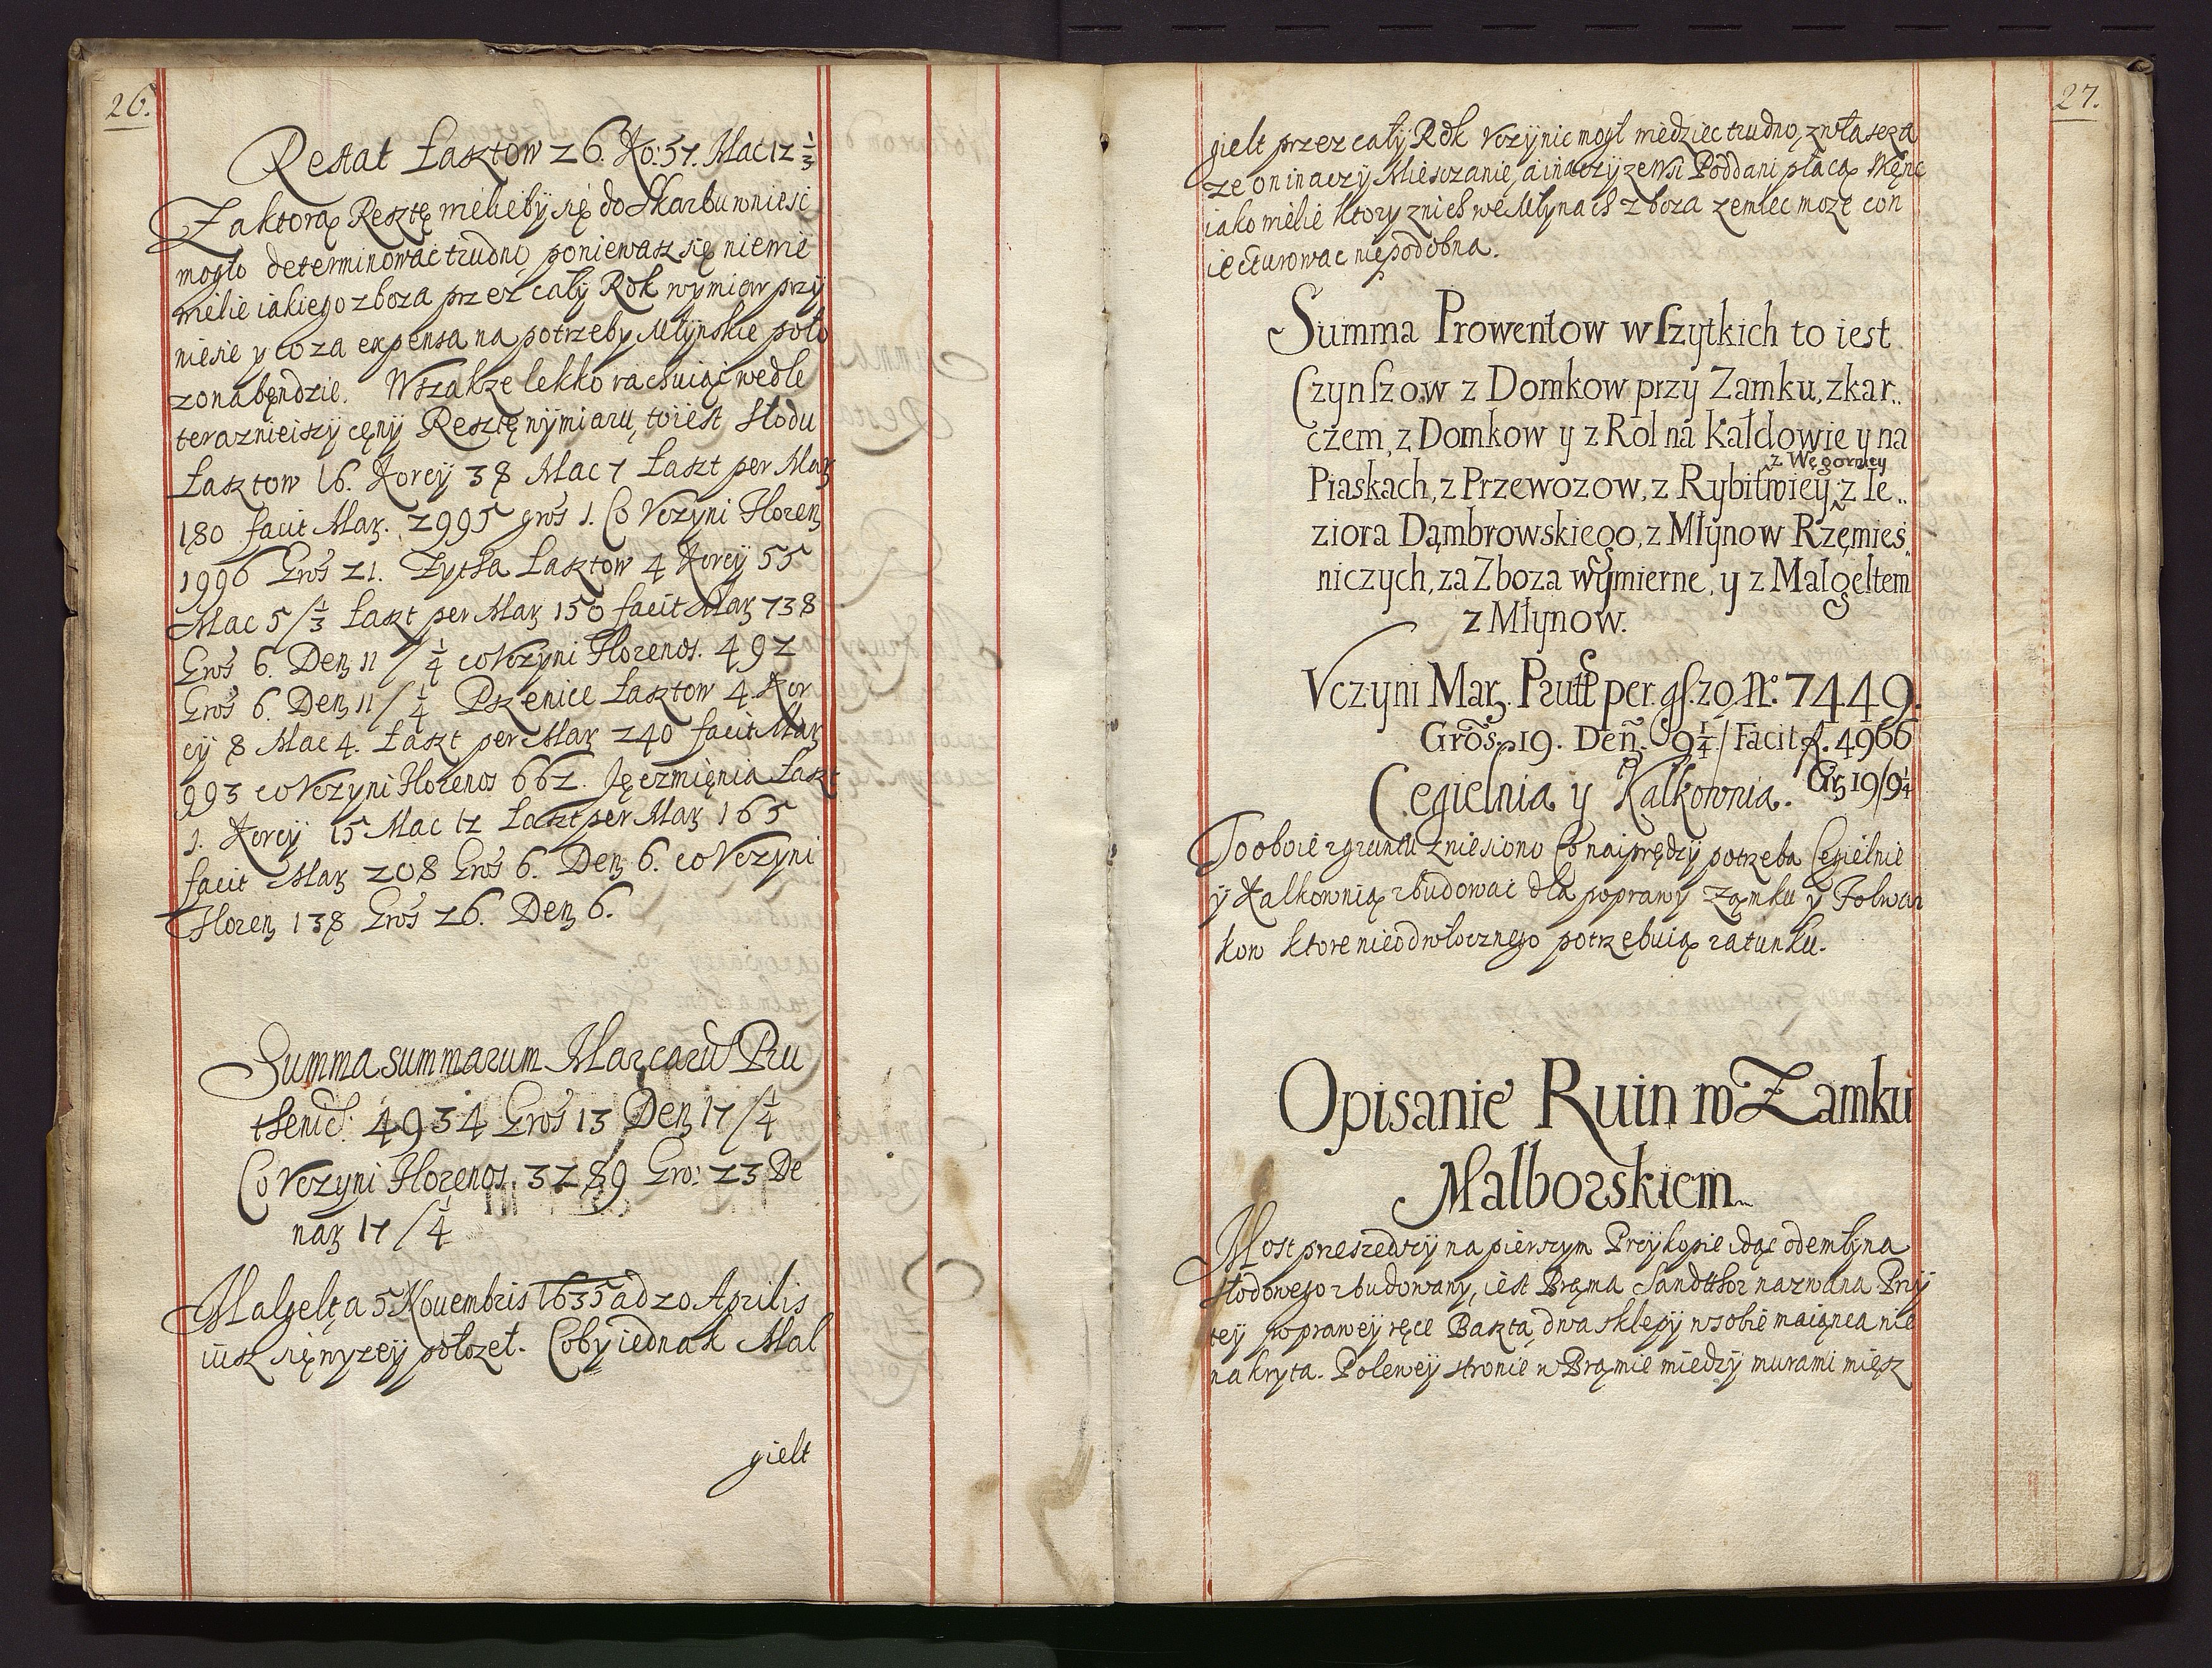 26.
Restat Łasztow 26. Ko: 57. Mac 12 1/3
Za ktorą Resztę wieleby się do Skarbu wniesc
mogło determinowac trudno, poniewasz się niewie
wiele iakiego zboza przez cały Rok wymiaw przy
niesie y co za expensa na potrzeby Młynskie poło
zona będzie. Wszakze lekko rachuiąc wedle
teraznieiszy cęny Resztę wymiaru, to iest Słodu
Łasztow 16. Korcy 38 Mac 7 Łaszt per Mar
180 facit Mar. 2995 gros 1. Co Vczyni Floren
1996 Gros 21. Zytha Łasztow 4 Korcy 55
Mac 5/1/3 Łaszt per Mar 150 facit Mar 738
Gros 6. Den 11/1/4 co Vczyni Florenos. 492
Gros 6. Den 11/1/4 Pszenice Łasztow 4. Kor
cy 8 Mac 4. Łaszt per Mar 240 facit Mar
993 co Vczyni Florenos 662. Jęczmięnia Łaszt
1. Korcy 15 Mac 12 Łaszt per Mar 165
facit Mar 208 Gros 6. Den 6. co Vczyni
Floren 138 Gros 26. Den 6.
Summa summarum Marcarū Pru
thenic: 4934 Gros 13 Den 17/1/4
Co Vczyni Florenos. 3289 Gro: 23 De
nar 17/1/4
Malgelt a 5 Nouembris 1635 ad 20 Aprilis
iusz się wyzey połozeł. Coby iednak Mal
gielt
27.
gielt przez cały Rok Vczynic mogł wiedziec trudno, zwłaszcza
ze on inaczy Miesczanie, a inaczy ze Wsi Poddani płacą Więnc
iako wiele ktory znich we Młynach zboza zemlec moze con
iecturowac niepodobna.
Summa Prowentow wszytkich to iest
Czynszow z Domkow przy Zamku, z kar..
czem, z Domkow y z Rol na Kałdowie y na
z Węgornicy
Piaskach, z Przewozow, z Rybitwiey, z Ie..
ziora Dąmbrowskiego, z Młynow Rzęmieś..
niczych, za Zboza wymierne, y z Malgeltem
z Młynow.
Vczyni Mar. Prutt per. gs. 20. No. 7449.
Gros. 19. Den. 9 1/4/ Facit fl. 4966
Gr 19/9 1/4
Cegielnia y Kalkownia.
To oboie z gruntu zniesiono Co naiprędzy potrzeba Cegielnie
y Kalkownią zbudowac dla poprawy Zamku y Folwar
kow ktore nieodwłocznego potrzebuią ratunku.
Opisanie Ruin w Zamku
Malborskiem
Most przeszedszy na pierszym Przykopie idąc od młyna
słodowego zbudowany, iest Brąma Sandthor nazwana Przy
tey po prawey ręce Baszta, dwa sklepy w sobie maiąnca nie
nakryta. Po lewey stronie w Brąmie miedzy murami miesz